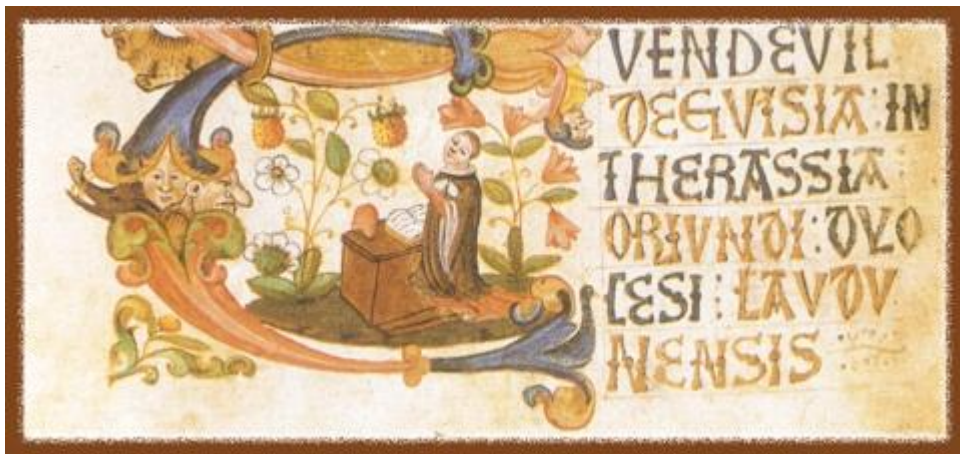 VENDEVIL
DEGVISIA : IN
THERASSIA :
ORIVNDI : DVO
CESI : LAVDV
NENSIS